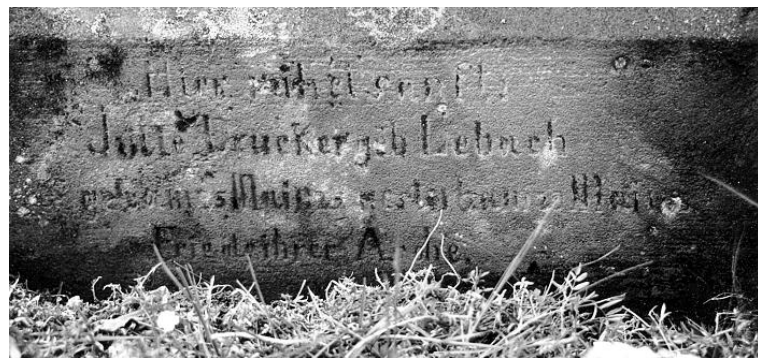 Hier ruhet sanft
Jütte Drucker geb Lebach
geb. am Mai gestorben Mai
Friede ihrer Asche.